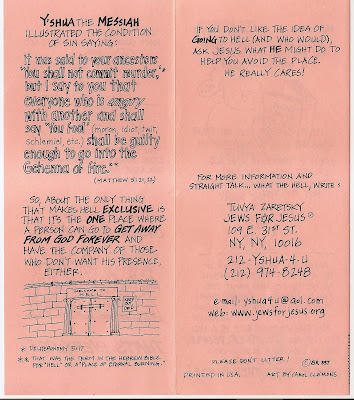 Y'SHUA THE MESSIAH
ILLUSTRATED THE CONDITION
OF SIN SAYING:
It was said to your ancestors
"You shall not commit murder,"*
but I say to you that
everyone who is angry
with another and shall
say "You fool" (moron, idiot, twit,
schlemiel, etc.) shall be guilty
enough to go into the
Gehenna of fire."**
(MATTHEW 5:21,22)
SO, ABOUT THE ONLY THING
THAT MAKES HELL EXCLUSIVE IS
THAT IT'S THE ONE PLACE WHERE
A PERSON CAN GO TO GET AWAY
FROM GOD FOREVER AND
HAVE THE COMPANY OF THOSE
WHO DON'T WANT HIS PRESENCE,
EITHER.
WELCOME TO
HELL
* DEUTERONOMY 5:17
** THAT WAS THE TERM IN THE HEBREW BIBLE
FOR "HELL" OR A "PLACE OF ETERNAL BURNING."
IF YOU DON'T LIKE THE IDEA OF
GOING TO HELL (AND WHO WOULD),
ASK JESUS WHAT HE MIGHT DO TO
HELP YOU AVOID THE PLACE.
HE REALLY CARES!
FOR MORE INFORMATION AND
STRAIGHT TALK... WHAT THE HELL, WRITE:
TUVYA ZARETSKY
JEWS FOR JESUS®
109 E. 31ST ST.
NY, NY, 10016
212-YSHUA-4-U
(212) 974-8248
e-mail: yshua4u@aol.com
web: www.jewsforjesus.org
PLEASE DON'T LITTER!
PRINTED IN USA.
ART BY CAROL CLEMONS